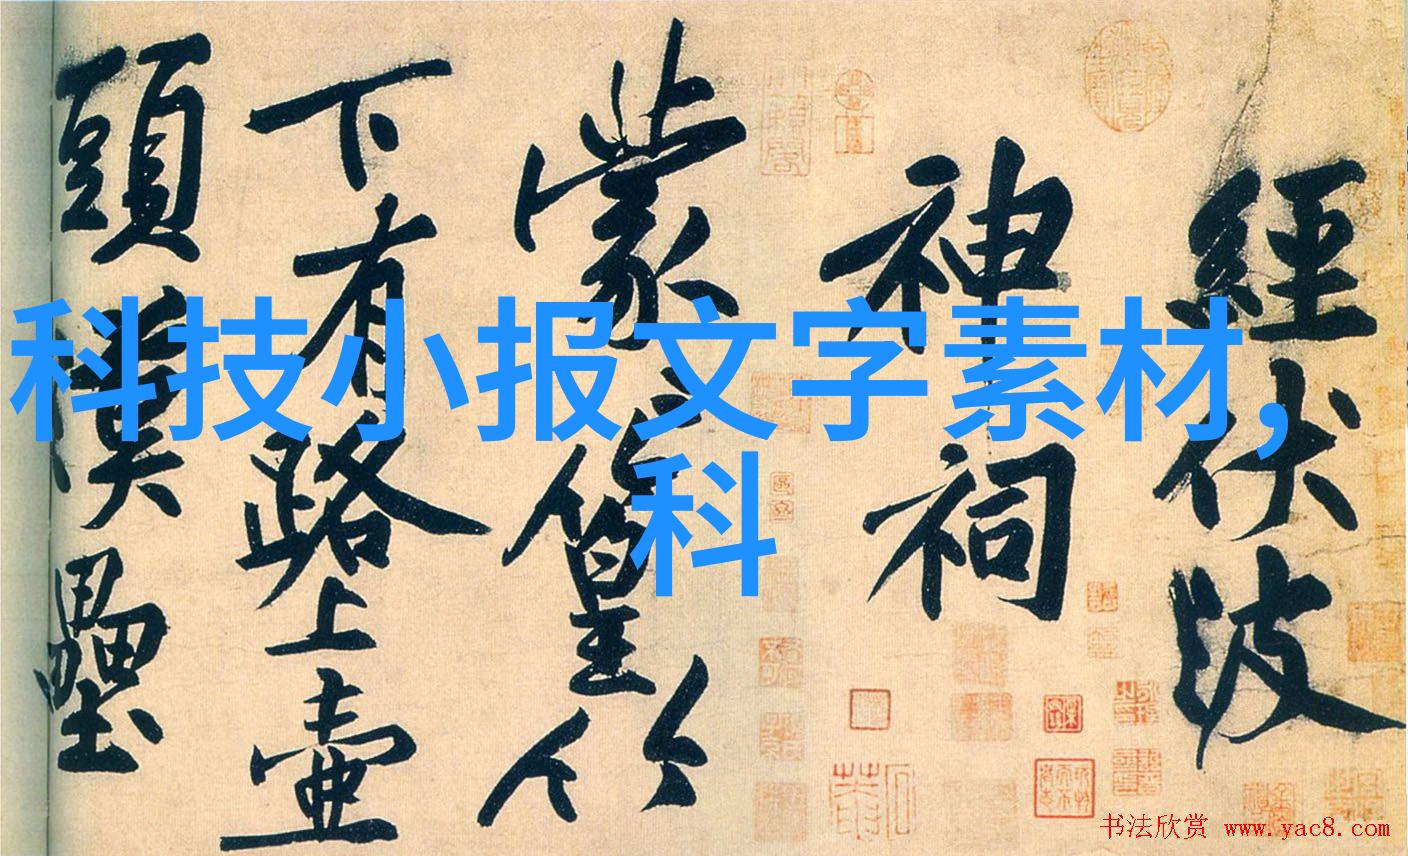 經伏波
神祠
蒙々篁竹
下有路上壺
頭漢壘
科技小报文字素材,
科
书法欣赏 www.yac8.com